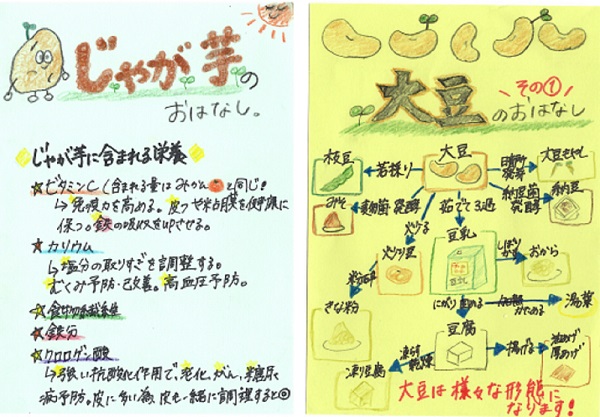 じゃが芋の
おはなし。
じゃが芋に含まれる栄養
☆ビタミンC(含まれる量はみかんと同じ!
↳免疫力を高める。皮フや粘膜を健康に
保つ。鉄の吸収をUPさせる。
☆カリウム
↳塩分の取りすぎを調整する。
むくみ予防・改善。高血圧予防。
☆食物繊維
☆鉄分
☆クロロゲン酸
↳強い抗酸化作用で、老化、がん、糖尿
病予防。皮に多い為、皮も一緒に調理すると◎
大豆のおはなし
その①
枝豆
若採り
大豆
日陰
発芽
大豆もやし
みそ
麹菌発酵
納豆菌
発酵
納豆
茹でて
炒る
炒り豆
豆乳
豆乳
しぼりかす
おから
粉砕
きな粉
にがり
固める
かためる
湯葉
豆腐
凍り豆腐
凍らす
乾燥
揚げる
油あげ
厚あげ
大豆は様々な形態に
なります!